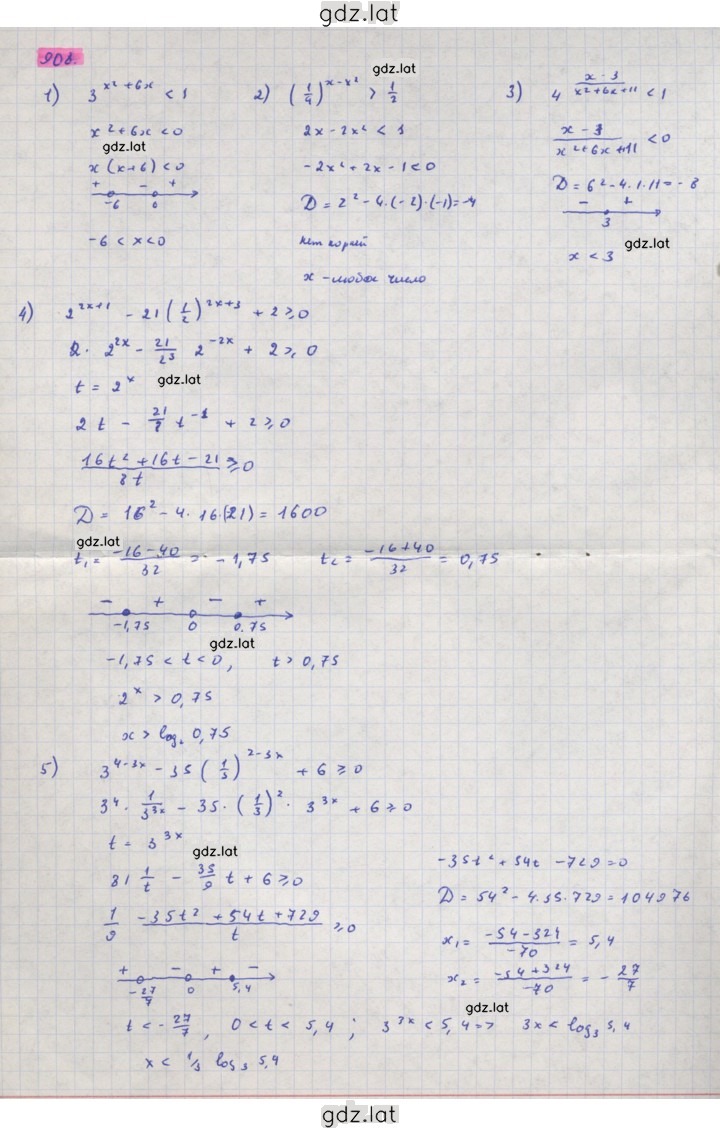 gdz.lat
908.
1) 3^(x²+6x) < 1
x²+6x < 0
gdz.lat
x(x+6) < 0
+ − +
-6 0
-6 < x < 0
gdz.lat
2) (1/4)^(x-x²) > 1/2
2x-2x² < 1
-2x²+2x-1 < 0
D = 2²-4·(-2)·(-1) = -4
нет корней
x - любое число
3) 4^((x-3)/(x²+6x+11)) < 1
(x-3)/(x²+6x+11) < 0
D = 6²-4·1·11 = -8
− +
3
gdz.lat
x < 3
4) 2^(2x+1) - 21(1/2)^(2x+3) + 2 ≥ 0
2·2^(2x) - 21/2³ 2^(-2x) + 2 ≥ 0
t = 2^x gdz.lat
2t - 21/8 t^(-1) + 2 ≥ 0
(16t²+16t-21)/8t ≥ 0
D = 16²-4·16·(21) = 1600
gdz.lat
t₁ = (-16-40)/32 = -1,75 t₂ = (-16+40)/32 = 0,75
− + − +
-1,75 0 0.75
gdz.lat
-1,75 < t < 0, t > 0,75
2^x > 0,75
x > log₂ 0,75
5) 3^(4-3x) - 35(1/3)^(2-3x) + 6 ≥ 0
3⁴·1/3^(3x) - 35·(1/3)²·3^(3x) + 6 ≥ 0
t = 3^(3x)
gdz.lat
81 1/t - 35/9 t + 6 ≥ 0
1/9 (-35t²+54t+729)/t ≥ 0
+ − + −
-27/7 0 5,4
-35t²+54t-729=0
D = 54²-4.35.729 = 104976
x₁ = (-54-324)/-70 = 5,4
x₂ = (-54+324)/-70 = -27/7
gdz.lat
t < -27/7, 0 < t < 5,4; 3^(3x) < 5,4 => 3x < log₃ 5,4
x < 1/3 log₃ 5,4
gdz.lat